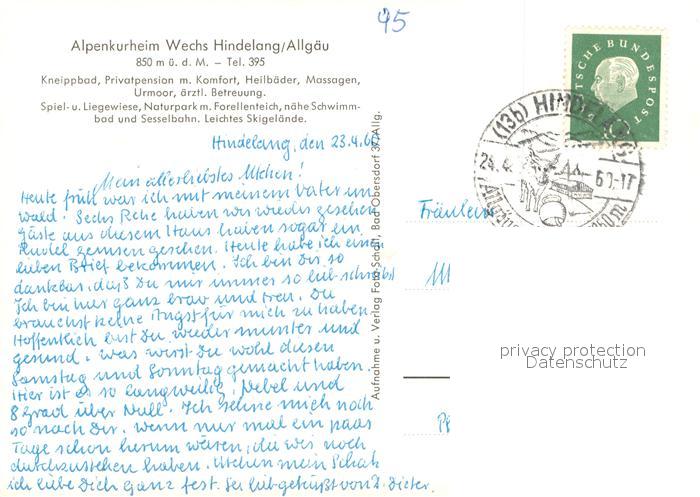 45
Alpenkurheim Wechs Hindelang/Allgäu
850 m ü. d. M. – Tel. 395
Kneippbad, Privatpension m. Komfort, Heilbäder, Massagen,
Urmoor, ärztl. Betreuung.
Spiel- u. Liegewiese, Naturpark m. Forellenteich, nähe Schwimm-
bad und Sesselbahn. Leichtes Skigelände.
Hindelang, den 23.4.60
Mein allerliebstes Utchen!
Heute früh war ich mit meinem Vater im
Wald. Sechs Rehe haben wir wieder gesehen
Gäste aus diesem Haus haben sogar ein
Rudel Gemsen gesehen. Heute habe ich einen
lieben Brief bekommen. Ich bin Dir so
dankbar, daß Du mir immer so lieb schreibst
Ich bin hier ganz brav und treu. Du
brauchst keine Angst für mich zu haben
Hoffentlich bist Du wieder munter und
gesund. Was wirst Du wohl diesen
Samstag und Sonntag gemacht haben.
Hier ist es so langweilig, Nebel und
8 Grad über Null. Ich sehne mich noch
so nach Dir. Wenn nur mal ein paar
Tage schon herum wären, die wir noch
durchzustehen haben. Utchen mein Schatz
ich liebe Dich ganz fest. Sei liebgeküßt von D. Dieter.
Aufnahme u. Verlag Foto-Schall, Bad Obersdorf 37/Allg.
DEUTSCHE BUNDESPOST
(13b) HINDELANG
24.4.60-17
Fräulein
privacy protection
Datenschutz